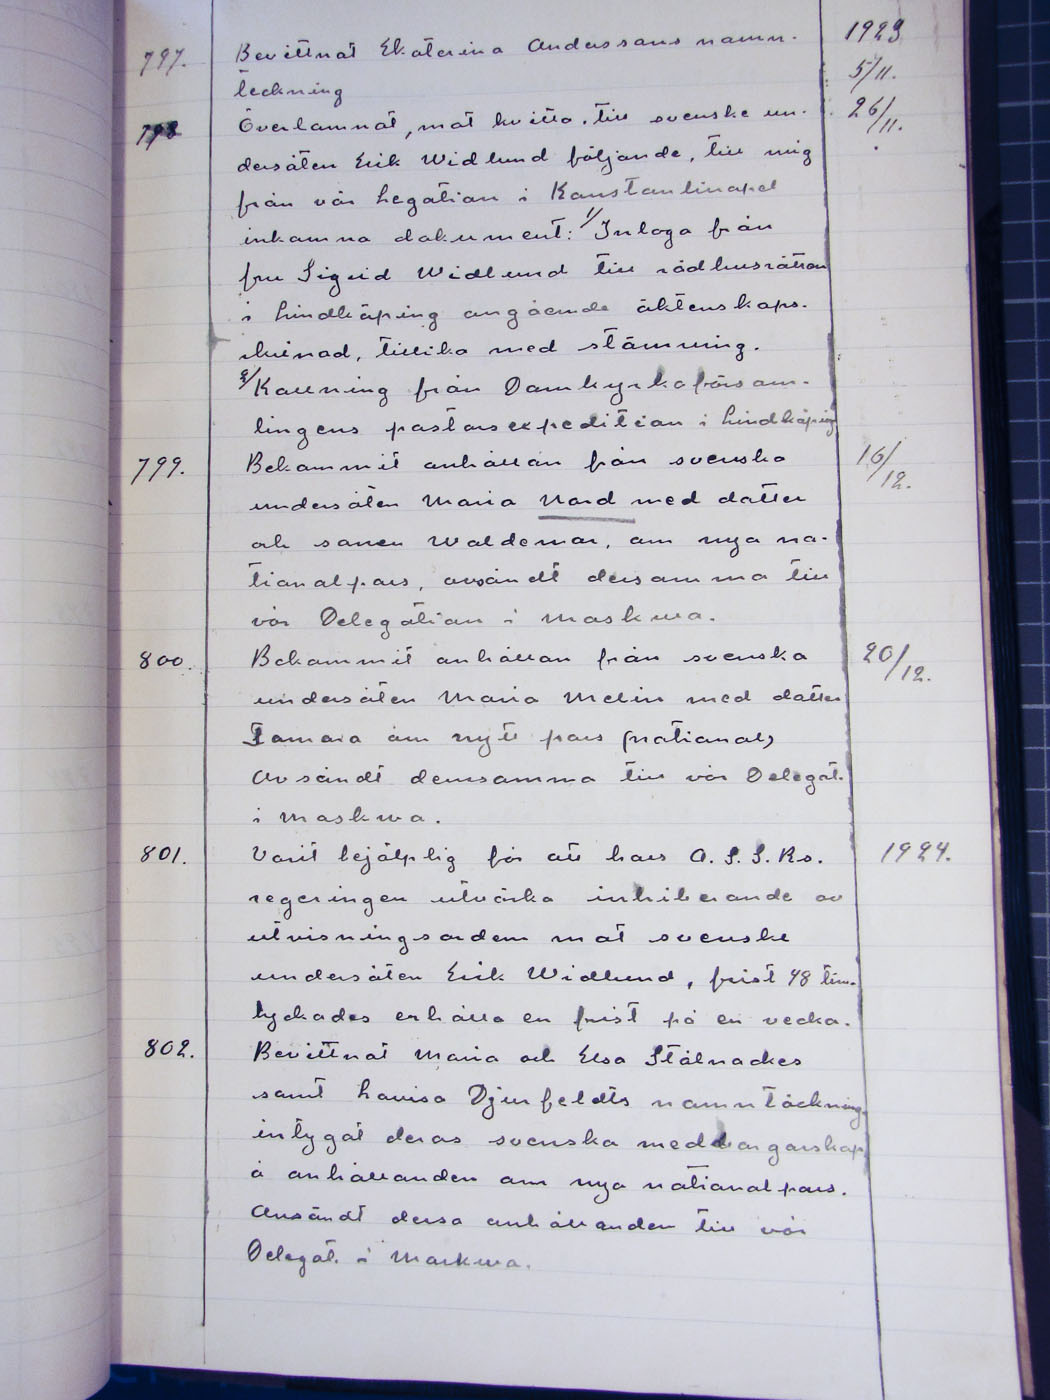 1923
797. Bevittnat Ekaterina Anderssons namn- 5/11.
teckning
798 Överlämnat, mot kvitto, till svenske un- 26/11.
dersåten Erik Widlund följande, till mig
från vår Legation i Konstantinopel
inkomna dokument: 1/ Inlaga från
fru Sigrid Widlund till rådhusrätten
i Lindköping angående äktenskaps-
skilnad, tillika med stämning.
2/ Kallning från Domkyrkoförsam-
lingens pastorsexpedition i Lindköping
799. Bekommit anhållan från svenska 16/12.
undersåten Maria Nord med dotter
och sonen Waldemar, om nya na-
tionalpass, avsändt densamma till
vår Delegation i Moskwa.
800. Bekommit anhållan från svenska 20/12.
undersåten Maria Melin med dotter
Tamara om nytt pass (national)
Avsändt densamma till vår Delegat.
i Moskwa.
801. Varit behjälplig för att hos A. S. S. Rs. 1924.
regeringen utvärka inhiberande av
utvisningsordern mot svenske
undersåten Erik Widlund, frist 48 tim.
lyckades erhålla en frist på en vecka.
802. Bevittnat Maria och Elsa Stålnackes
samt Lovisa Djurfeldts namntäckning,
intygat deras svenska medborgarskap
å anhållanden om nya nationalpass.
Avsändt dessa anhållanden till vår
Delegat. i Moskwa.